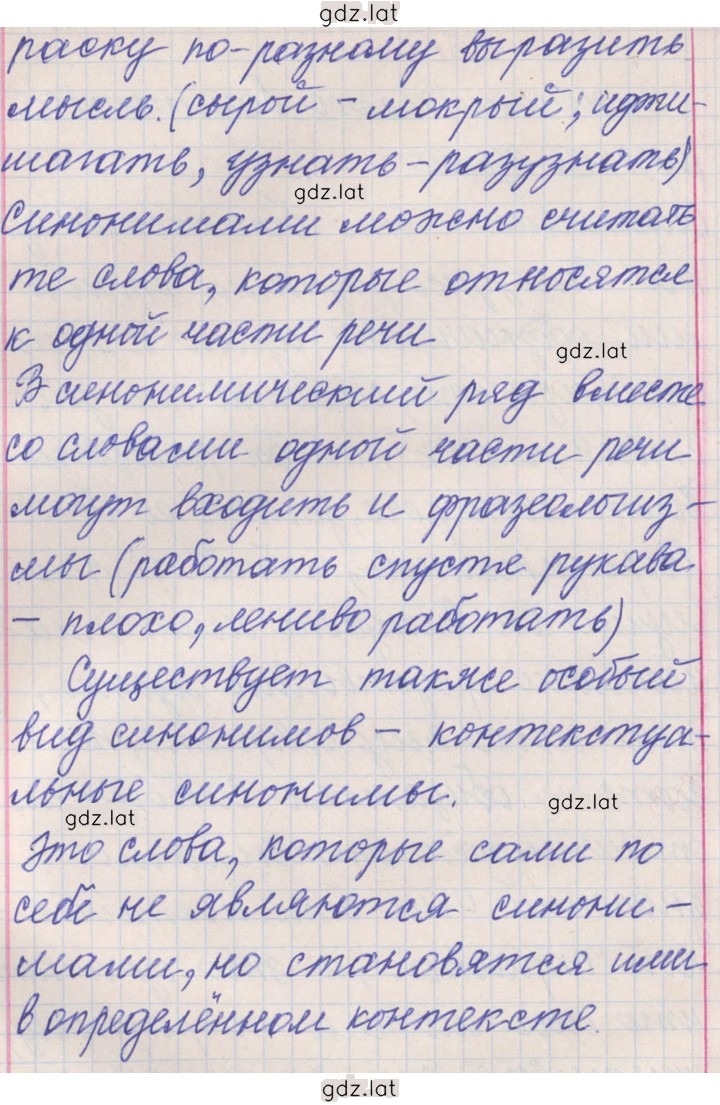 gdz.lat
раску по-разному выразить
мысль. (сырой - мокрый; идти-
шагать, узнать - разузнать)
gdz.lat
Синонимами можно считать
те слова, которые относятся
к одной части речи
gdz.lat
В синонимический ряд вместе
со словами одной части речи
могут входить и фразеологиз-
мы (работать спустя рукава
- плохо, лениво работать)
Существует также особый
вид синонимов - контекстуа-
льные синонимы.
gdz.lat
gdz.lat
Это слова, которые сами по
себе не являются синони-
мами, но становятся ими
в определённом контексте.
gdz.lat